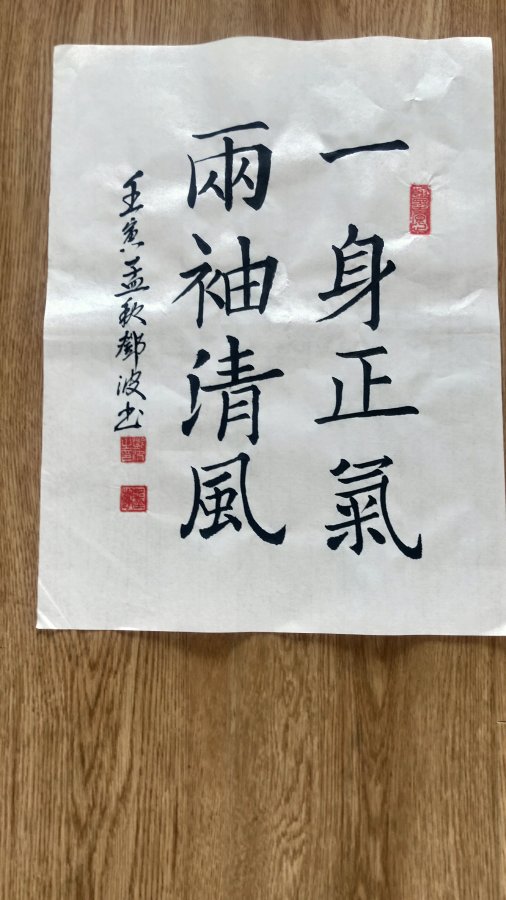 一身正氣
兩袖清風
壬寅孟秋鄧波书